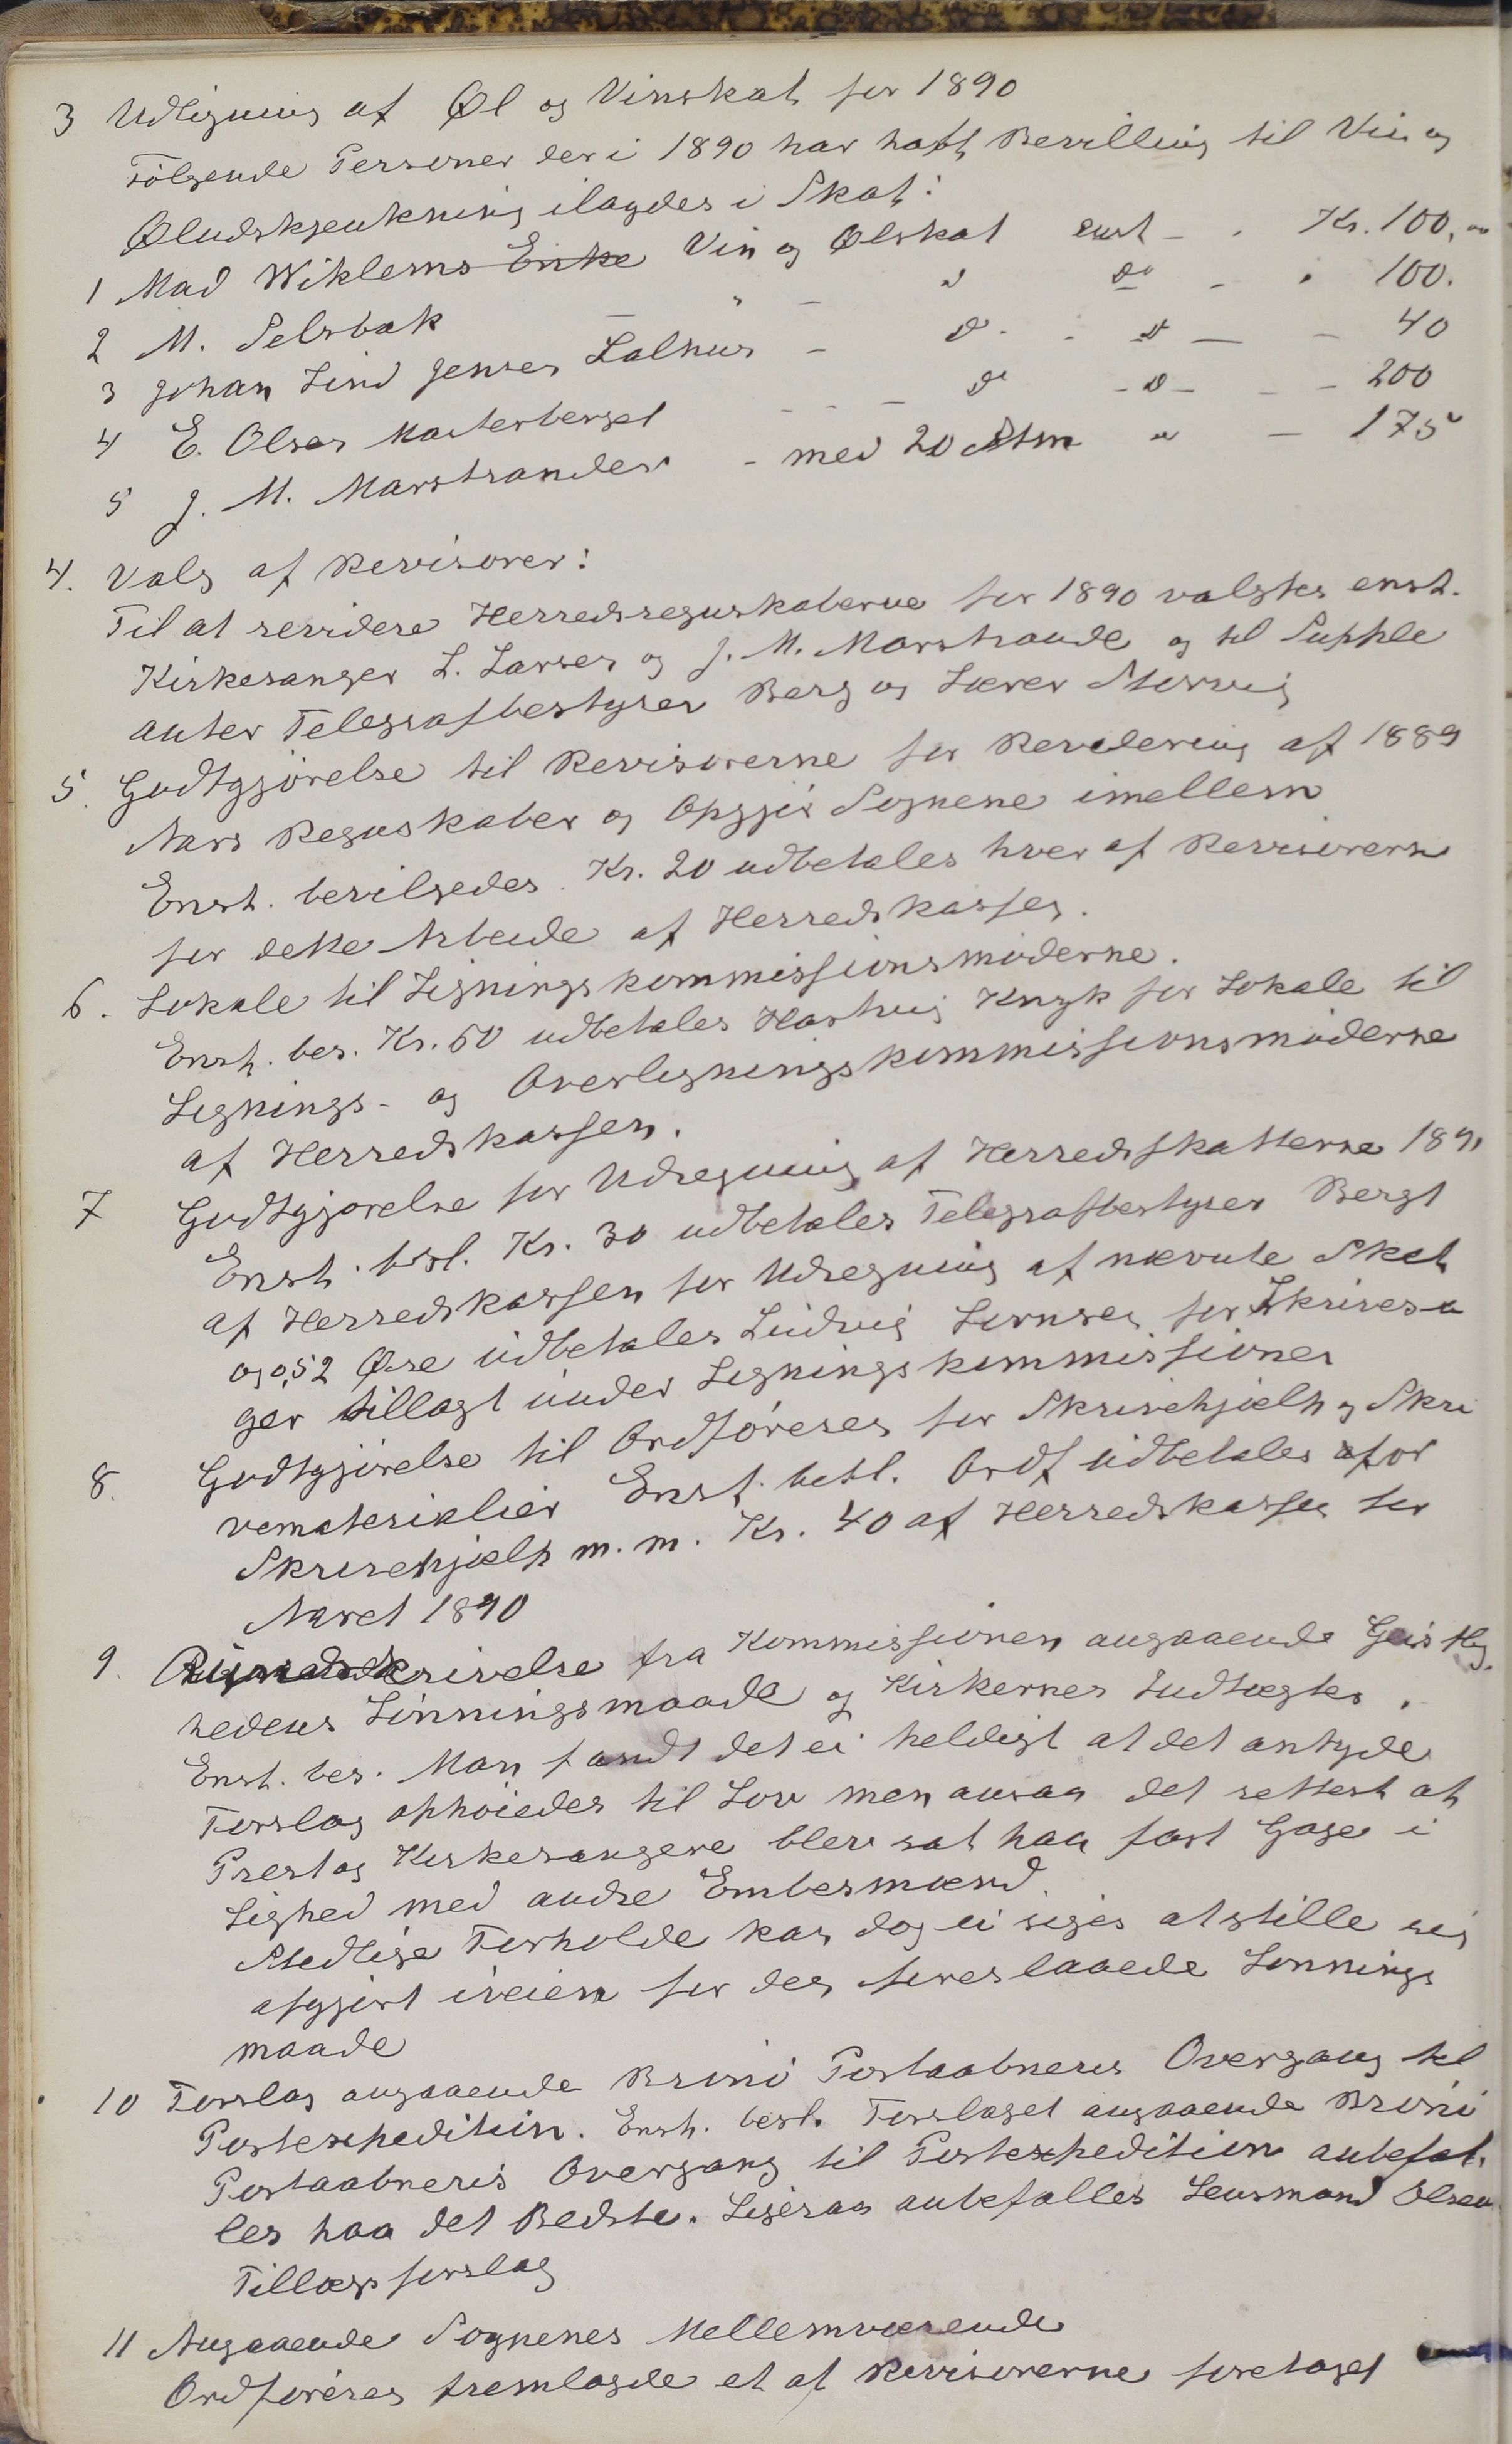 3 Udligning af Øl og Vinskat for 1890
Følgende Personer der i 1890 har havt Bevilling til Vin og
Øludskjenkning ilagdes i Skat:
1 Mad Wiklems Enke Vin og Ølskat enst - . Kr. 100,00
2 M. Selsbak " - " do - . 100.
3 Johan Lind Jensen Lalnus - do . do - - 40
4 E. Olsen Mosterberget - - - do - do - - - 200
5 J. M. Marstrander - med 20 Stm " - 175
4. Valg af Revisorer:
Til at revidere Herredsregnskaberne for 1890 valgtes enst.
Kirkesanger L. Larsen og J. M. Marstrande og til Supple
anter Telegrafbestyrer Berg og Lærer Storvig
5. Godtgjørelse til Revisorerne for Revidering af 1889
Aars Regnskaber og Opgjør Sognene imellem
Enst. bevilgedes Kr. 20 udbetales hver af Revisorerne
for dette Arbeide af Herredskassen.
6. Lokale til Ligningskommissionsmøderne.
Enst. bes. Kr. 50 udbetales Hartvig Knyk for Lokale til
Lignings- og Overligningskommissionsmøderne
af Herredskassen.
7 Godtgjørelse for Udregning af Herredsskatterne 1891
Enst. besl. Kr. 30 udbetales Telegrafbestyrer Bergt
af Herredskassen for Udregning af nævnte Skat
og 0,52 Øre udbetales Ludvig Sernsen for Skrivesa
ger tillagt under Ligningskommissionen
8. Godtgjørelse til Ordføreren for Skrivehjælp og Skri
vematerialier Enst. besl. Ordf udbetales for
Skrivehjælp m. m. Kr. 40 af Herredskassen for
Aaret 1890
9. skrivelse fra Kommissionen angaaende Geistlig
hedens Lønningsmaade og Kirkernes Indtægter.
Enst. bes. Man fandt det ei heldigt at det antyde
Forslag ophøiedes til Lov men ansaa det rettest at
Prest og Kirkesangere blev sat paa fast Gage i
Lighed med andre Embedsmænd.
Stedlige Forholde kan dog ei siges at stille sig
afgjort iveien for den foreslaaede Lønnings
maade
10 Forslag angaaende Brønø Postaabneris Overgang til
Postexpedition. Enst. besl. Forslaget angaaende Brønø
Postaabneris Overgang til Postexpedition anbefal.
les paa det Bedste. Ligesaa anbefalles Lensmand Olsen
Tillægsforslag
11 Angaaende Sognenes Mellemværende
Ordføreren fremlagde et af Revisorerne foretaget